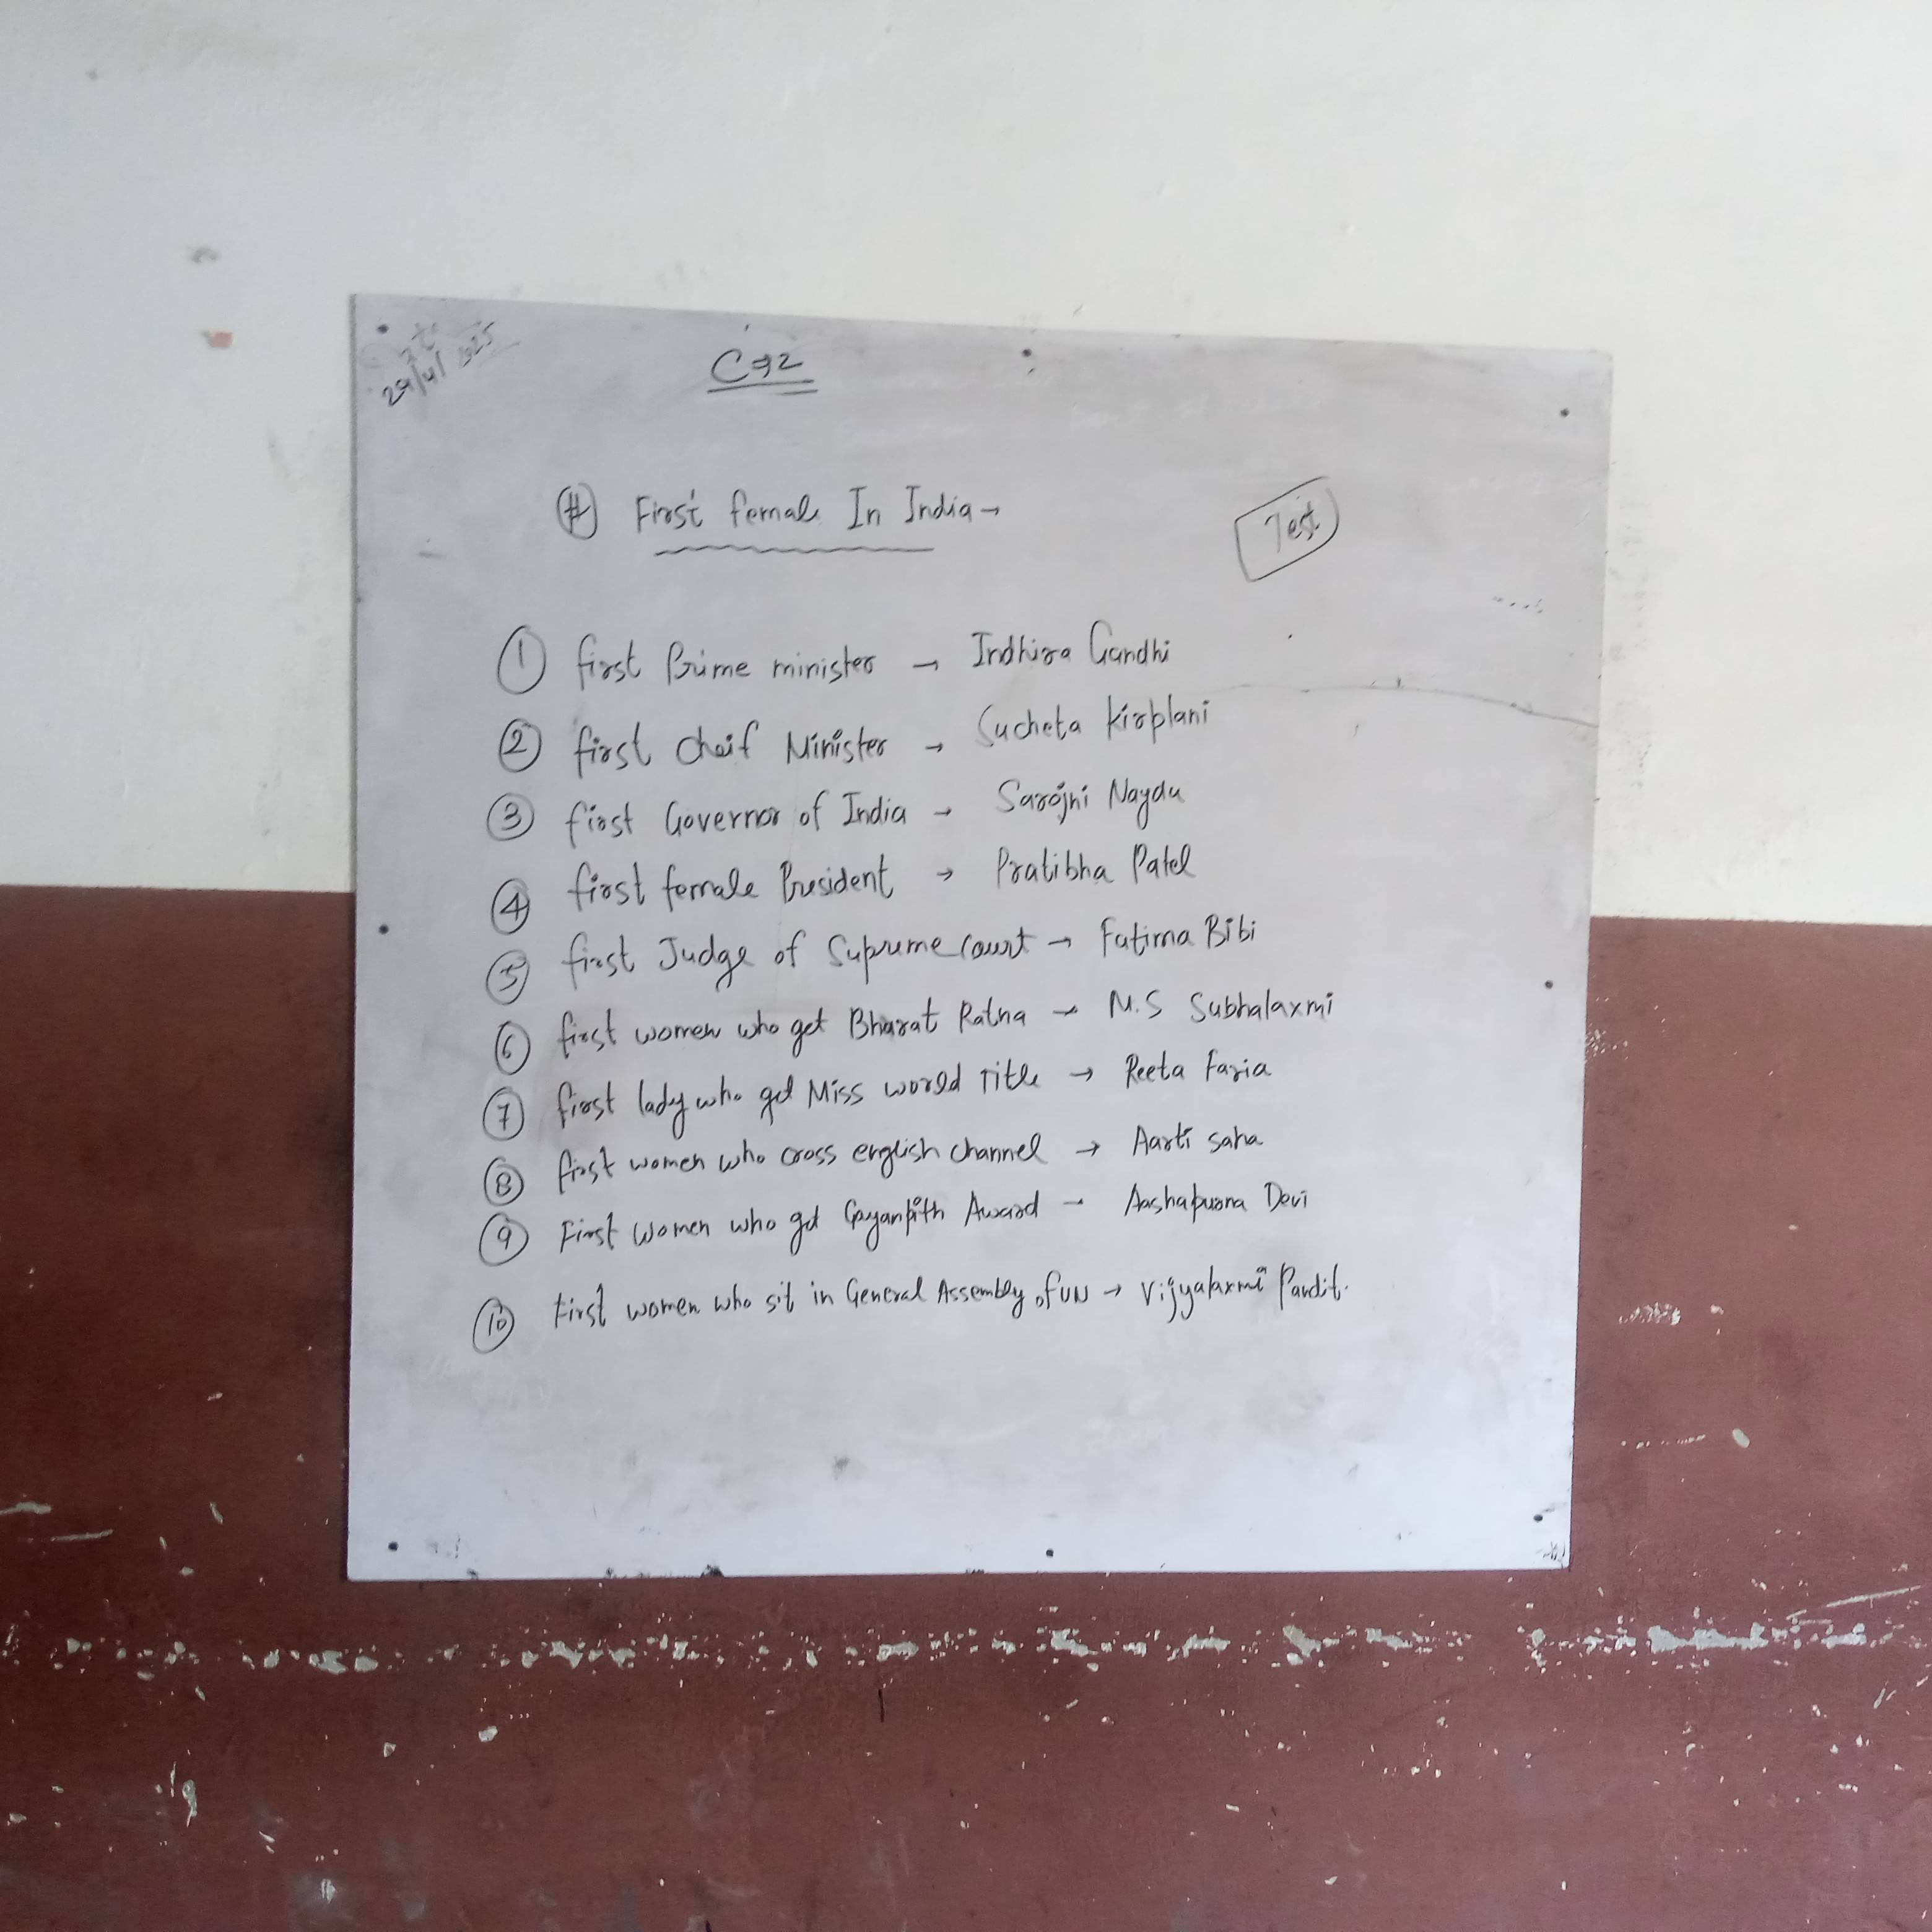 29/4/2025
C-72
# First female In India →
Test
① first Prime minister → Indhira Gandhi
② first Cheif Minister → Sucheta Kirplani
③ first Governor of India → Sarojni Naydu
④ first female President → Pratibha Patel
⑤ first Judge of Supreme Court → Fatima Bibi
⑥ first women who get Bharat Ratna → M.S Subhalaxmi
⑦ first lady who get Miss world Title → Reeta Faria
⑧ first women who cross english channel → Aarti saha
⑨ First Women who get Gayanpith Award → Aashapurna Devi
⑩ First women who sit in General Assembly of UN → Vijyalaxmi Pandit.